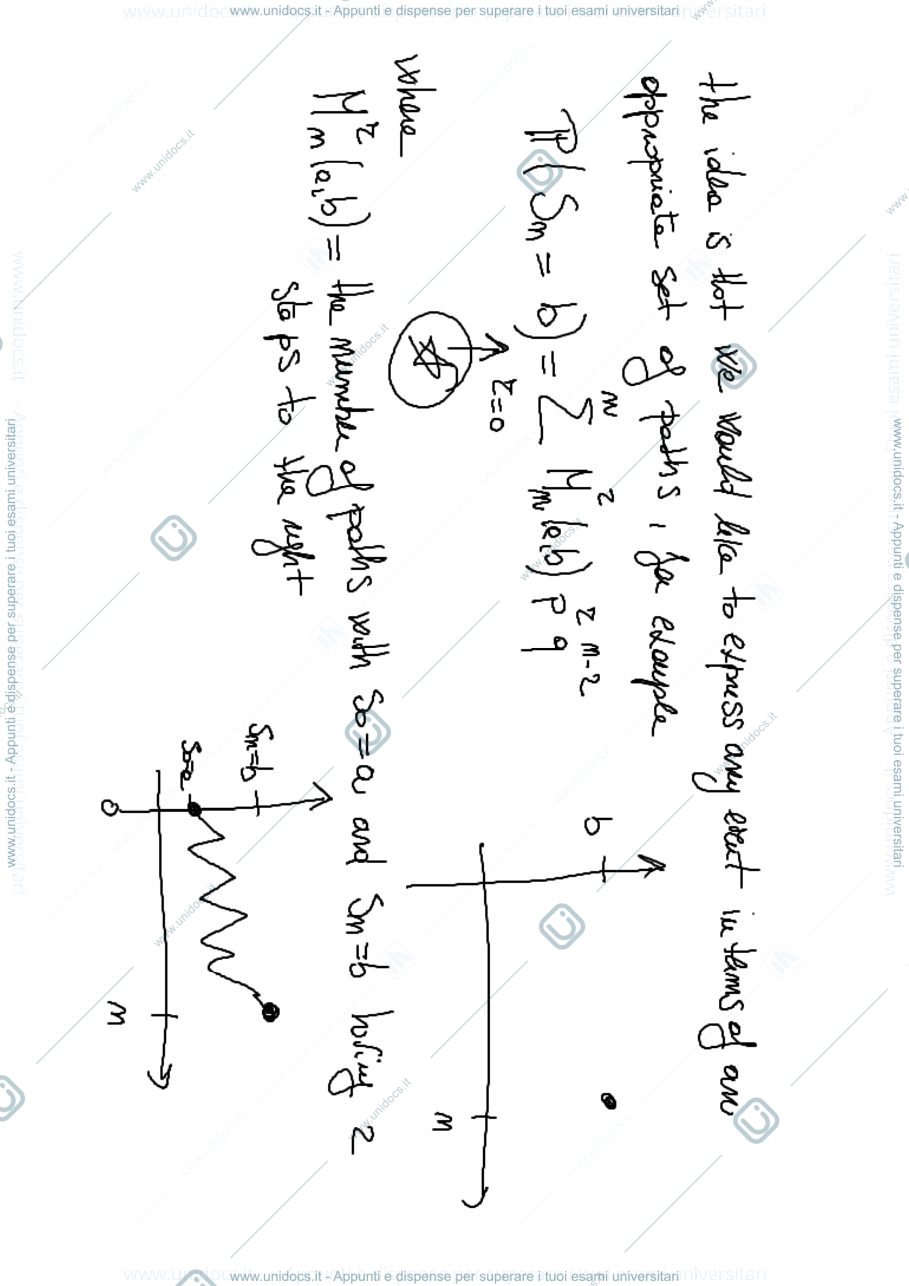 the idea is that we would like to express any event in terms of an
appropriate set of paths, for example
P(Sn = b) = Σ Mn^r(a,b) p^r q^n-r
n
r=0
b
n
where
Mn^r(a,b) = the number of paths with So=a and Sn=b having r
steps to the right
Sn=b
So=a
0
n
www.unidocs.it - Appunti e dispense per superare i tuoi esami universitari
www.unidocs.it - Appunti e dispense per superare i tuoi esami universitari
www.unidocs.it - Appunti e dispense per superare i tuoi esami universitari
www.unidocs.it - Appunti e dispense per superare i tuoi esami universitari